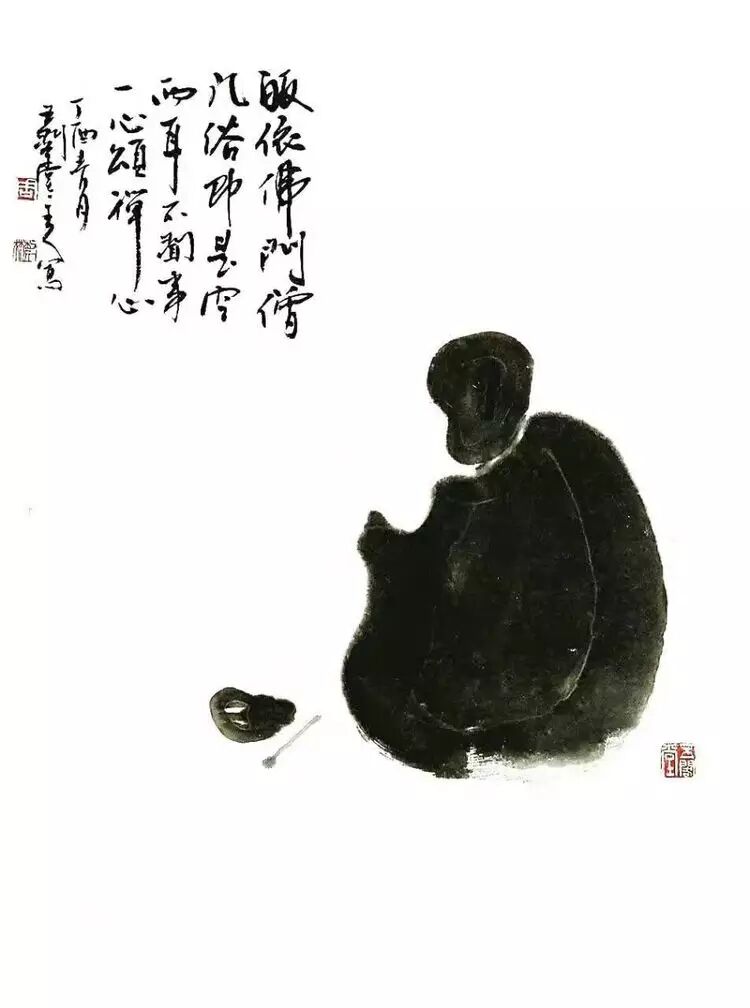 皈依佛門僧
凡俗即是空
両耳不聞事
一心頌禪心
丁酉月
堂主人寫